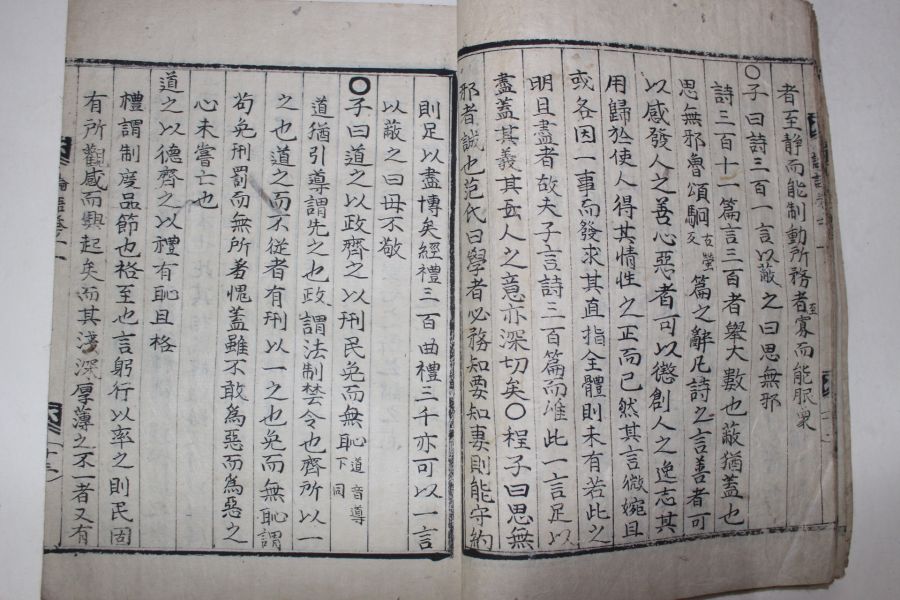 者至静而能制動所務者至寡而能服衆
○子曰詩三百一言以蔽之曰思無邪
詩三百十一篇言三百者舉大數也蔽猶盖也
思無邪魯頌駉篇之辭凡詩之言善者可
以感發人之善心惡者可以懲創人之逸志其
用歸於使人得其情性之正而已然其言微婉且
或各因一事而發求其直指全體則未有若此之
明且盡者故夫子言詩三百篇而唯此一言足以
盡盖其義其示人之意亦深切矣○程子曰思無
邪者誠也范氏曰學者必務知要知要則能守約
則足以盡博矣經禮三百曲禮三千亦可以一言
以蔽之曰毋不敬
○子曰道之以政齊之以刑民免而無恥道音導下同
道猶引導謂先之也政謂法制禁令也齊所以一
之也道之而不從者有刑以一之也免而無恥謂
苟免刑罰而無所羞愧盖雖不敢為惡而為惡之
心未嘗亡也
道之以德齊之以禮有恥且格
禮謂制度品節也格至也言躬行以率之則民固
有所觀感而興起矣而其淺深厚薄之不一者又有